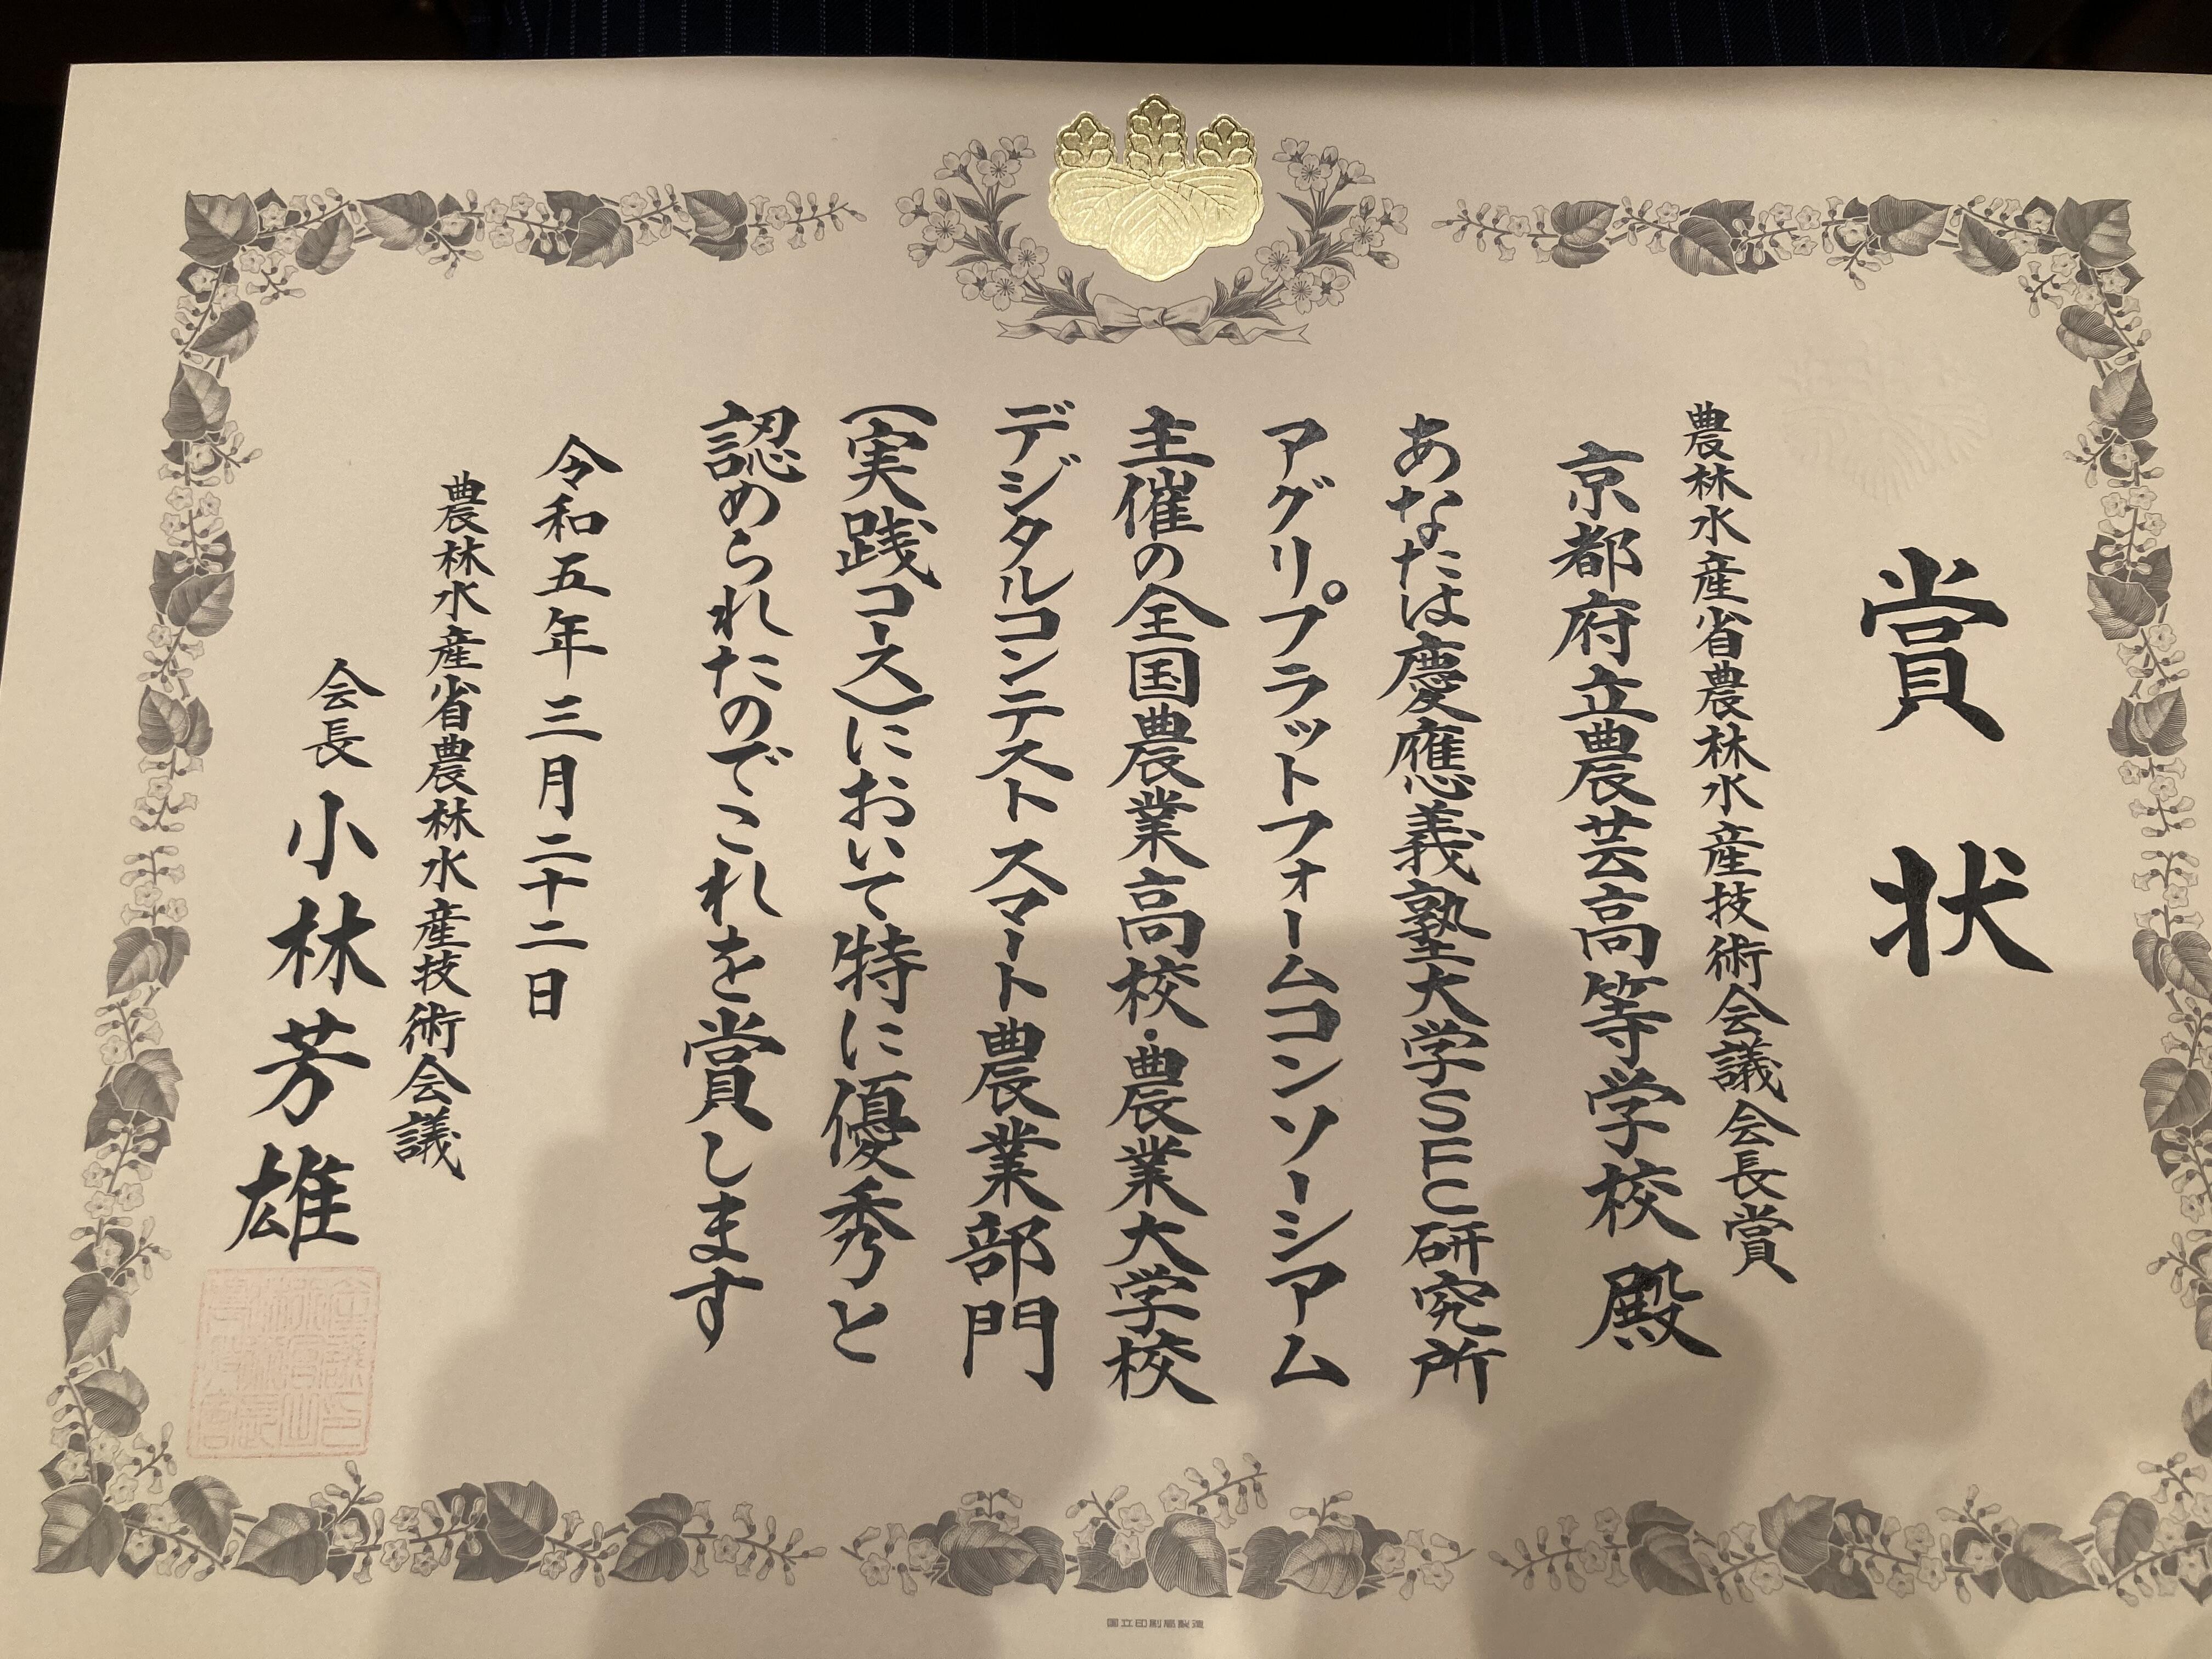 賞状
農林水産省農林水産技術会議会長賞
京都府立農芸高等学校 殿
あなたは慶應義塾大学SFC研究所
アグリプラットフォームコンソーシアム
主催の全国農業高校・農業大学校
デジタルコンテストスマート農業部門
(実践コース)において特に優秀と
認められたのでこれを賞します
令和五年三月二十二日
農林水産省農林水産技術会議
会長 小林芳雄
国立印刷局製造